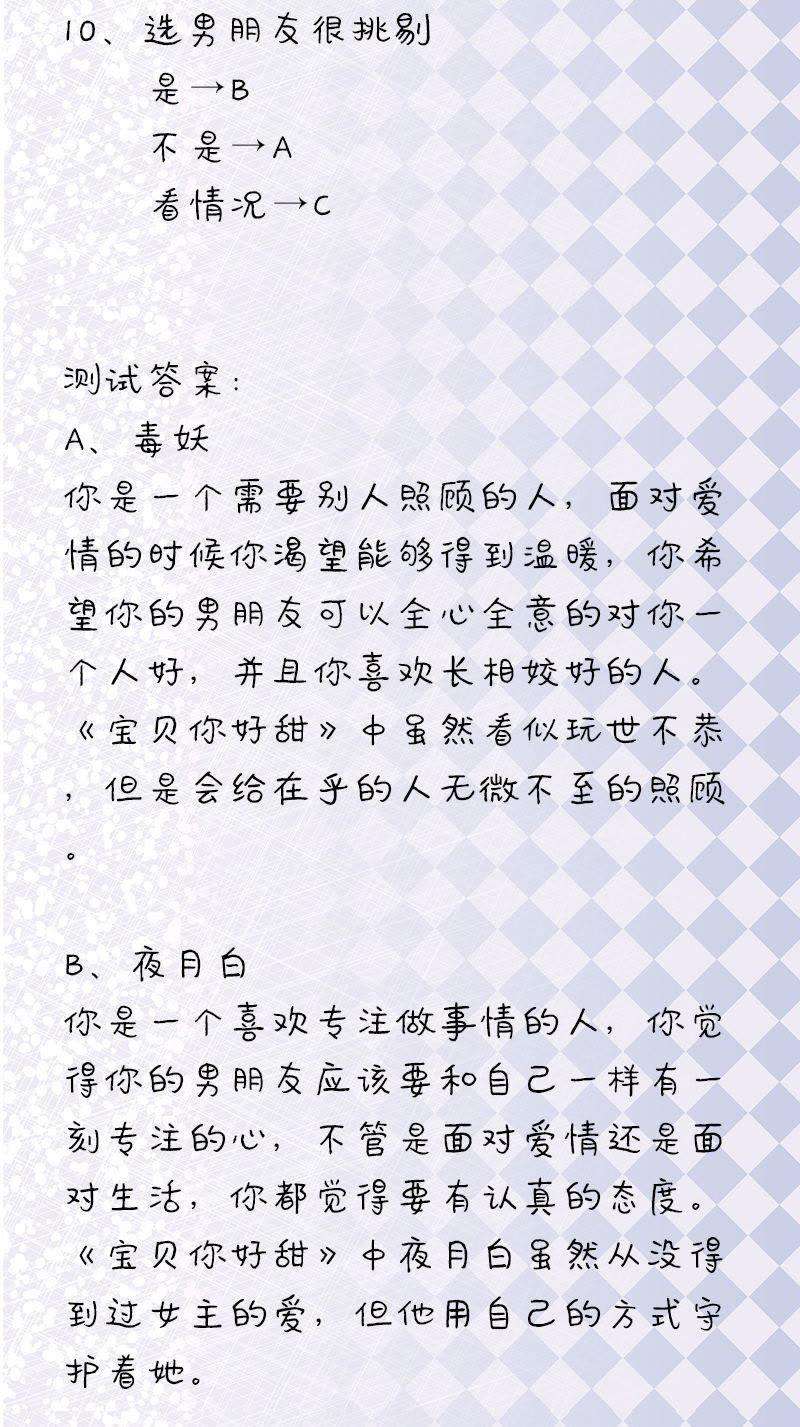 10、选男朋友很挑剔
是→B
不是→A
看情况→C
测试答案：
A、毒妖
你是一个需要别人照顾的人，面对爱
情的时候你渴望能够得到温暖，你希
望你的男朋友可以全心全意的对你一
个人好，并且你喜欢长相姣好的人。
《宝贝你好甜》中虽然看似玩世不恭
，但是会给在乎的人无微不至的照顾
。
B、夜月白
你是一个喜欢专注做事情的人，你觉
得你的男朋友应该要和自己一样有一
刻专注的心，不管是面对爱情还是面
对生活，你都觉得要有认真的态度。
《宝贝你好甜》中夜月白虽然从没得
到过女主的爱，但他用自己的方式守
护着她。